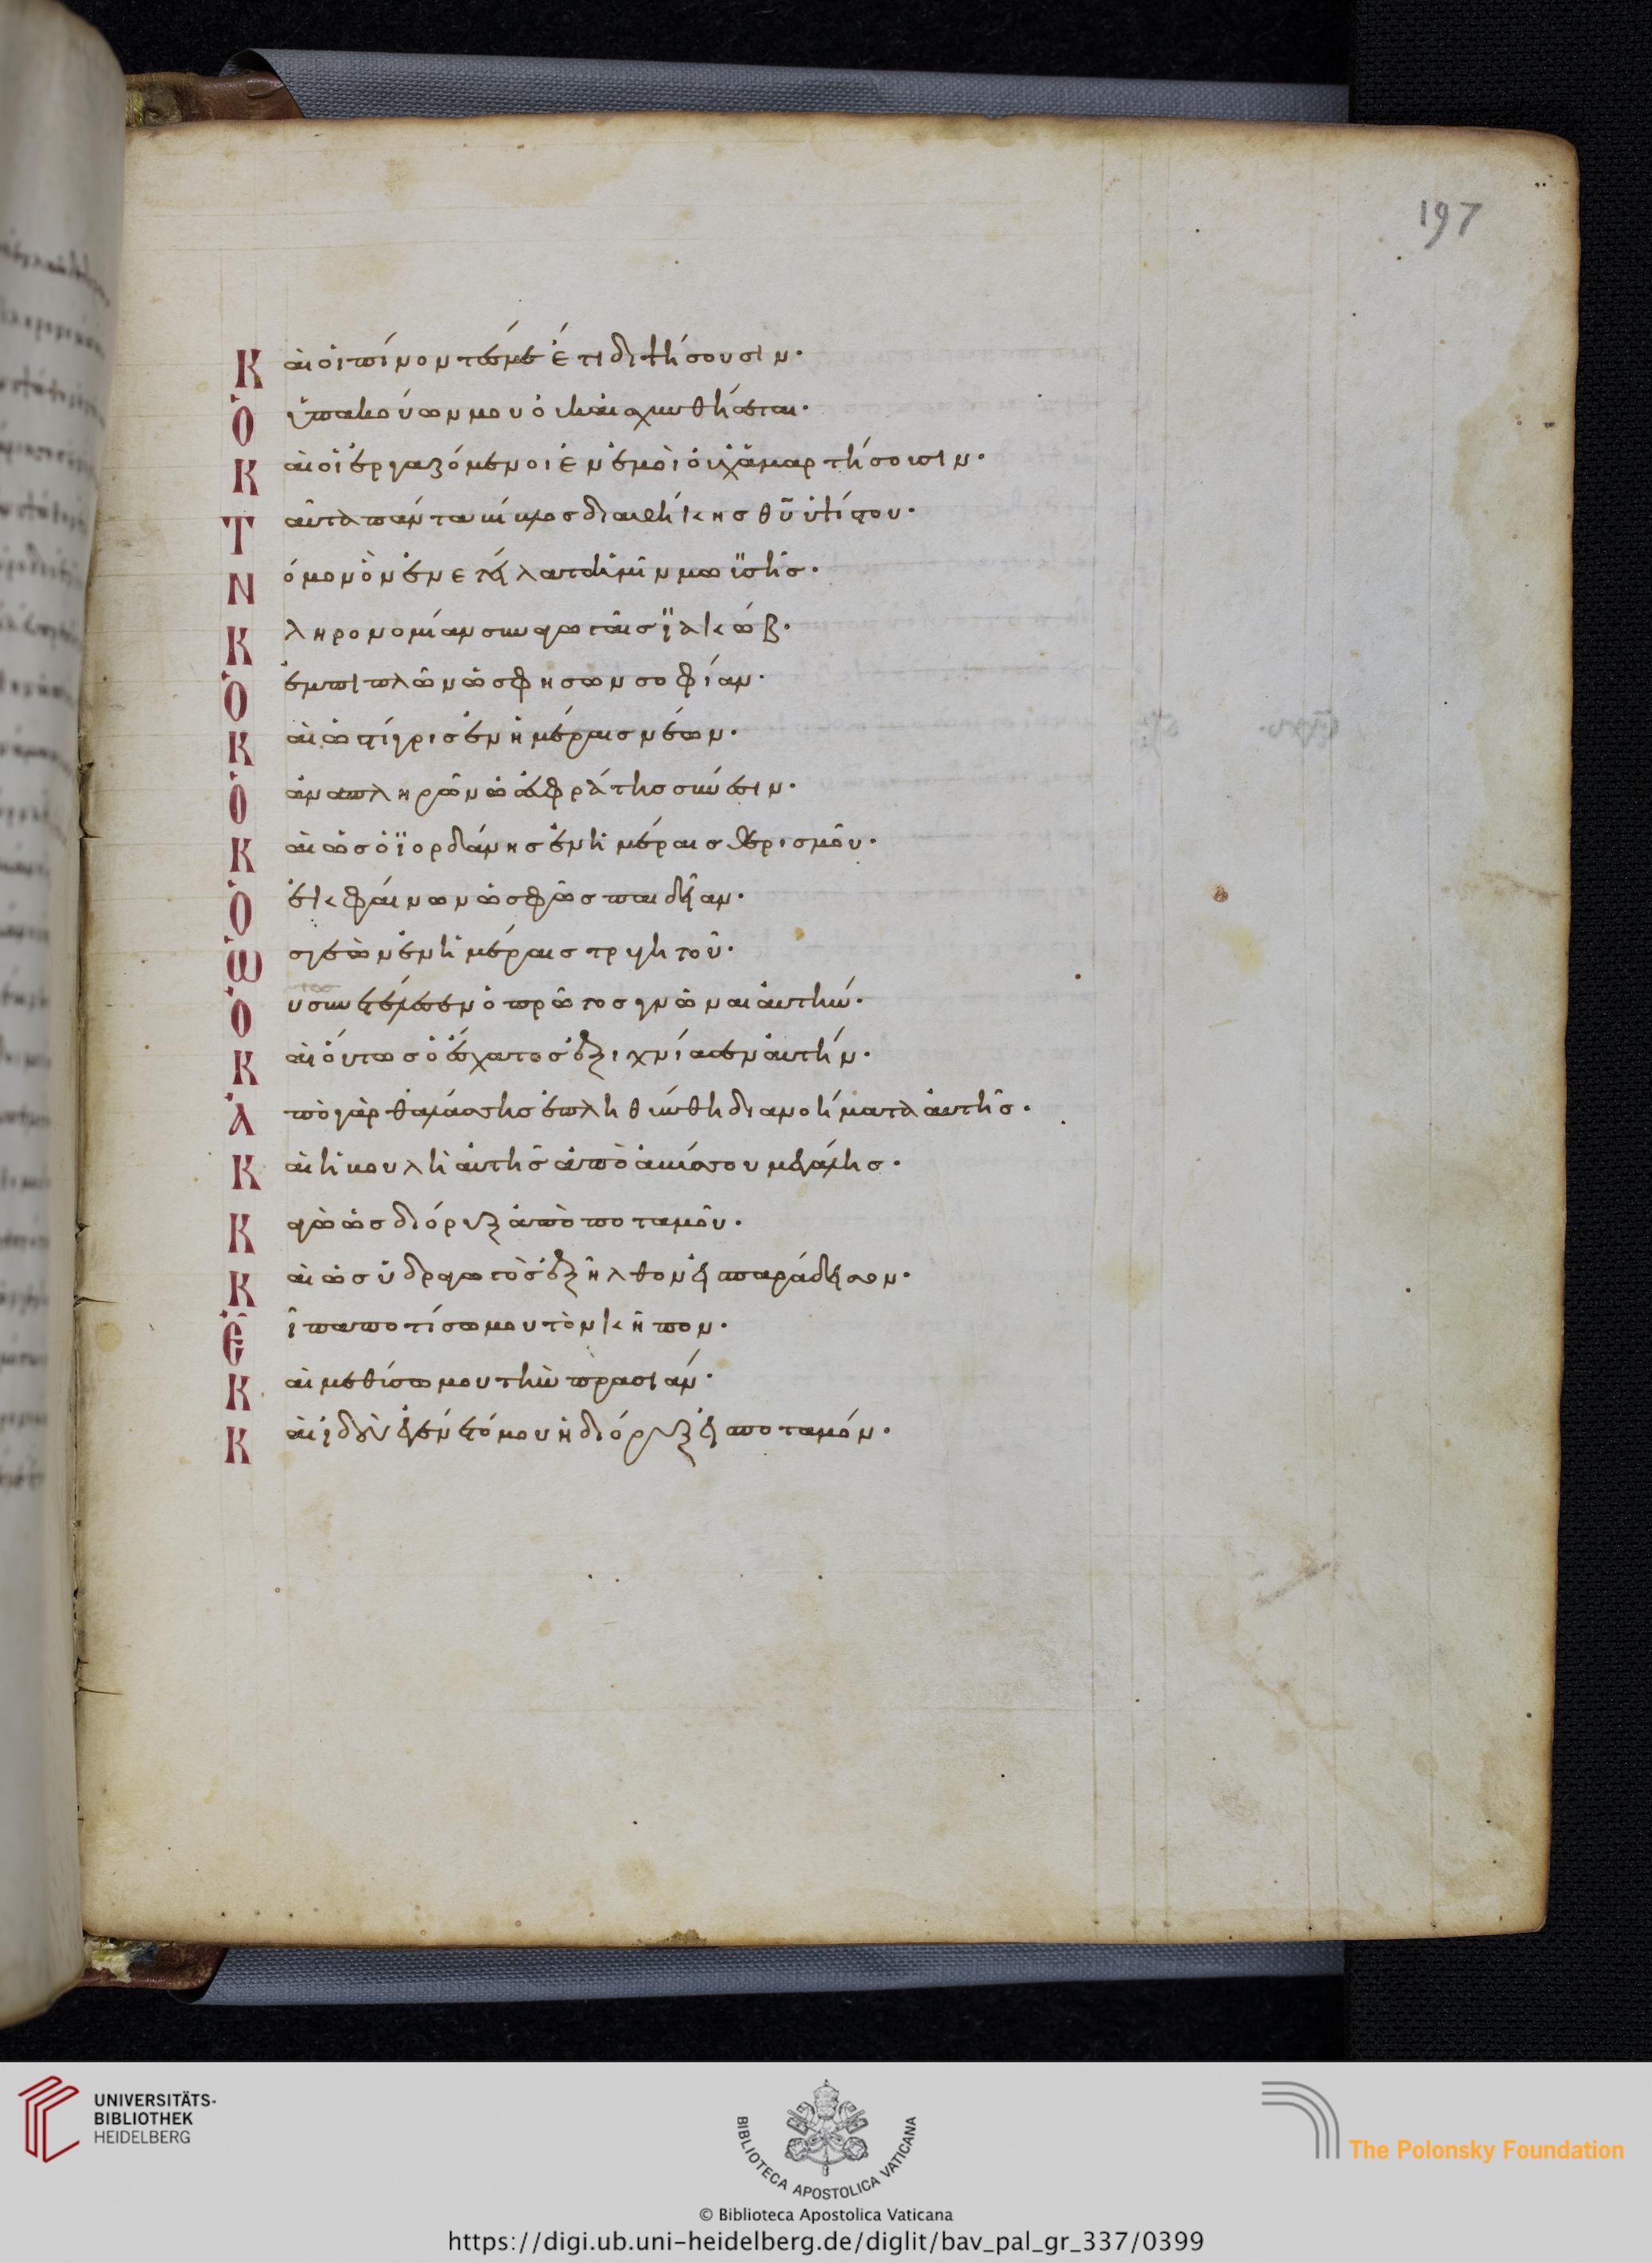 197
Καὶ οἱ πίνοντές με ἔτι διψήσουσιν·
Ὁ ὑπακούων μου οὐκ αἰσχυνθήσεται·
Καὶ οἱ ἐργαζόμενοι ἐν ἐμοὶ οὐχ ἁμαρτήσουσιν·
Ταῦτα πάντα βίβλος διαθήκης θῦ ὑψίστου·
Νόμον ὃν ἐνετείλατο ἡμῖν μωϋσῆς·
Κληρονομίαν συναγωγαῖς ϊακώβ·
Ὁ ἐμπιπλῶν ὡς φησων σοφίαν·
Καὶ ὡς τίγρις ἐν ἡμέραις νέων·
Ὁ ἀναπληρῶν ὡς εὐφράτης σύνεσιν·
Καὶ ὡς ὁ ϊορδάνης ἐν ἡμέραις θερισμοῦ·
Ὁ ἐκφαίνων ὡς φῶς παιδείαν·
Ὡς γεὼν ἐν ἡμέραις τρυγητοῦ·
Ὀυ συνετέλεσεν ὁ πρῶτος γνῶναι ἀυτήν·
Καὶ ὅυτως ὁ ἔσχατος ἐξιχνίασεν ἀυτήν·
Ἀπὸ γὰρ θαλάσσης ἐπληθύνθη διανοήματα ἀυτῆς·
Καὶ ἡ βουλὴ ἀυτῆς ἀπὸ ἀβύσσου μεγάλης·
Κἀγὼ ὡς διόρυξ ἀπὸ ποταμοῦ·
Καὶ ὡς ὑδραγωγὸς ἐξῆλθον εἰς παράδεισον·
Εἶπα ποτίσω μου τὸν κῆπον·
Καὶ μεθύσω μου τὴν πρασιάν·
Καὶ ἰδοὺ ἐγένετό μου ἡ διόρυξ εἰς ποταμόν·
UNIVERSITÄTS-
BIBLIOTHEK
HEIDELBERG
BIBLIOTECA APOSTOLICA VATICANA
The Polonsky Foundation
© Biblioteca Apostolica Vaticana
https://digi.ub.uni-heidelberg.de/diglit/bav_pal_gr_337/0399